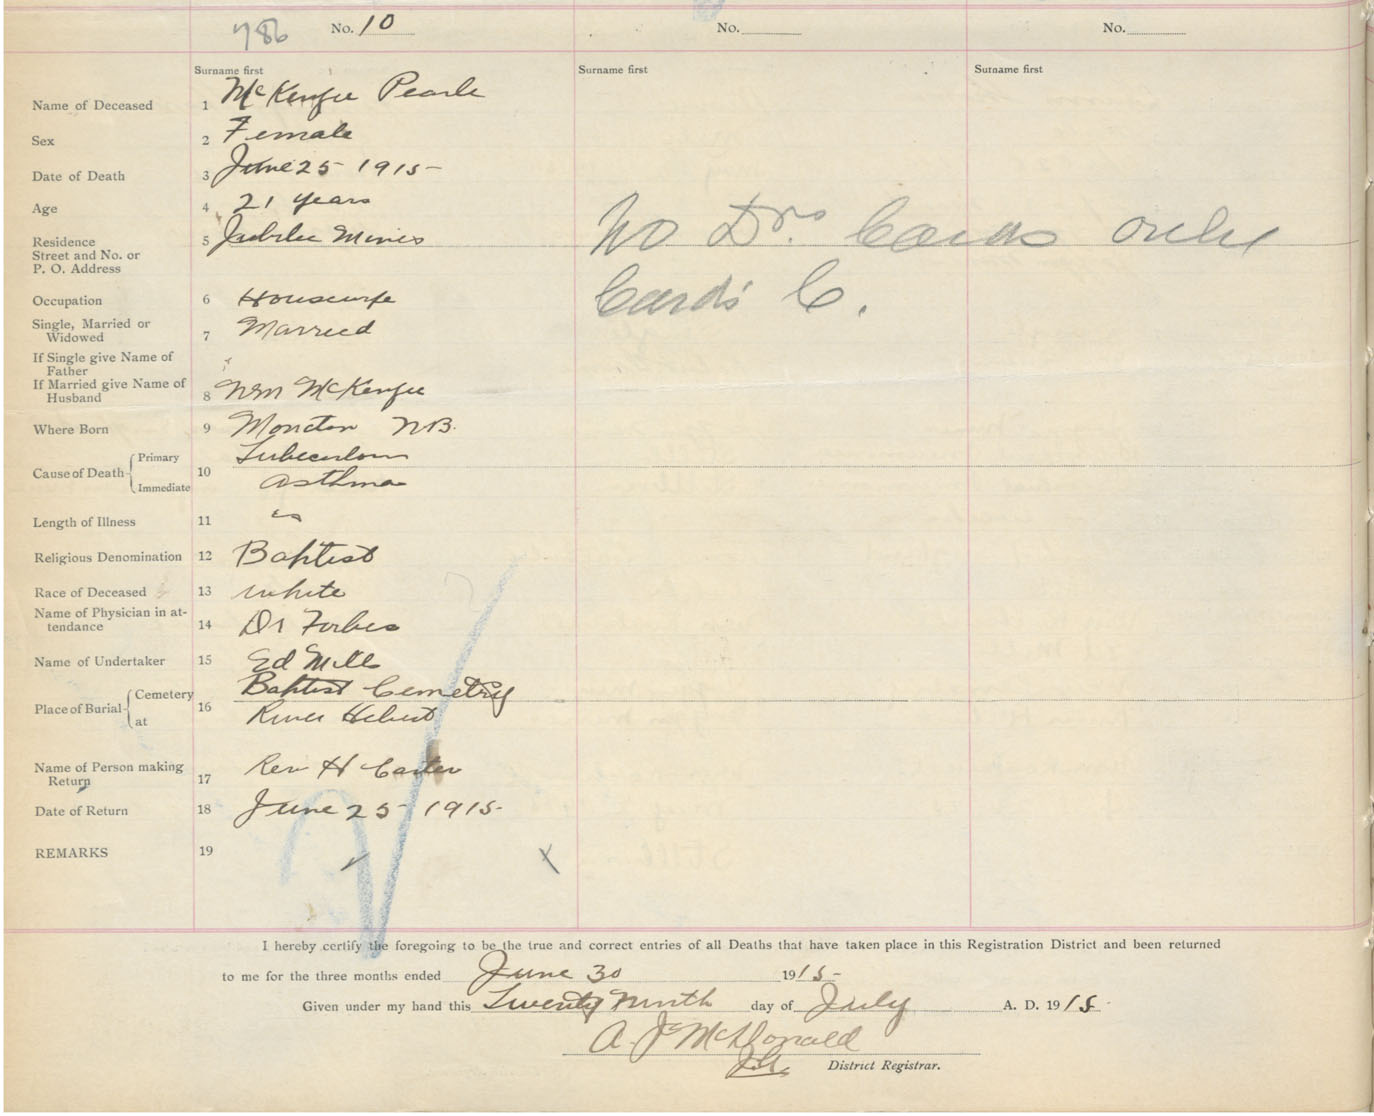 786 No. 10 No. No.
Surname first Surname first Surname first
Name of Deceased 1 McKenzie Pearle
Sex 2 Female
Date of Death 3 June 25 1915
Age 4 21 years
Residence 5 Jubilee Mines
Street and No. or
P. O. Address
No Drs. Cards only
Cards C.
Occupation 6 Housewife
Single, Married or
Widowed 7 Married
If Single give Name of
Father
If Married give Name of
Husband 8 Wm McKenzie
Where Born 9 Moncton N.B.
Cause of Death { Primary 10 Tuberculous
Immediate Asthma
Length of Illness 11 "
Religious Denomination 12 Baptist
Race of Deceased 13 White
Name of Physician in at-
tendance 14 Dr Forbes
Name of Undertaker 15 Ed Mills
Place of Burial { Cemetery 16 Baptist Cemetry
at River Hebert
Name of Person making
Return 17 Rev H Carter
Date of Return 18 June 25 1915
REMARKS 19
I hereby certify the foregoing to be the true and correct entries of all Deaths that have taken place in this Registration District and been returned
to me for the three months ended June 30 1915
Given under my hand this Twenty Ninth day of July A. D. 1915
A. J. McDonald
District Registrar.